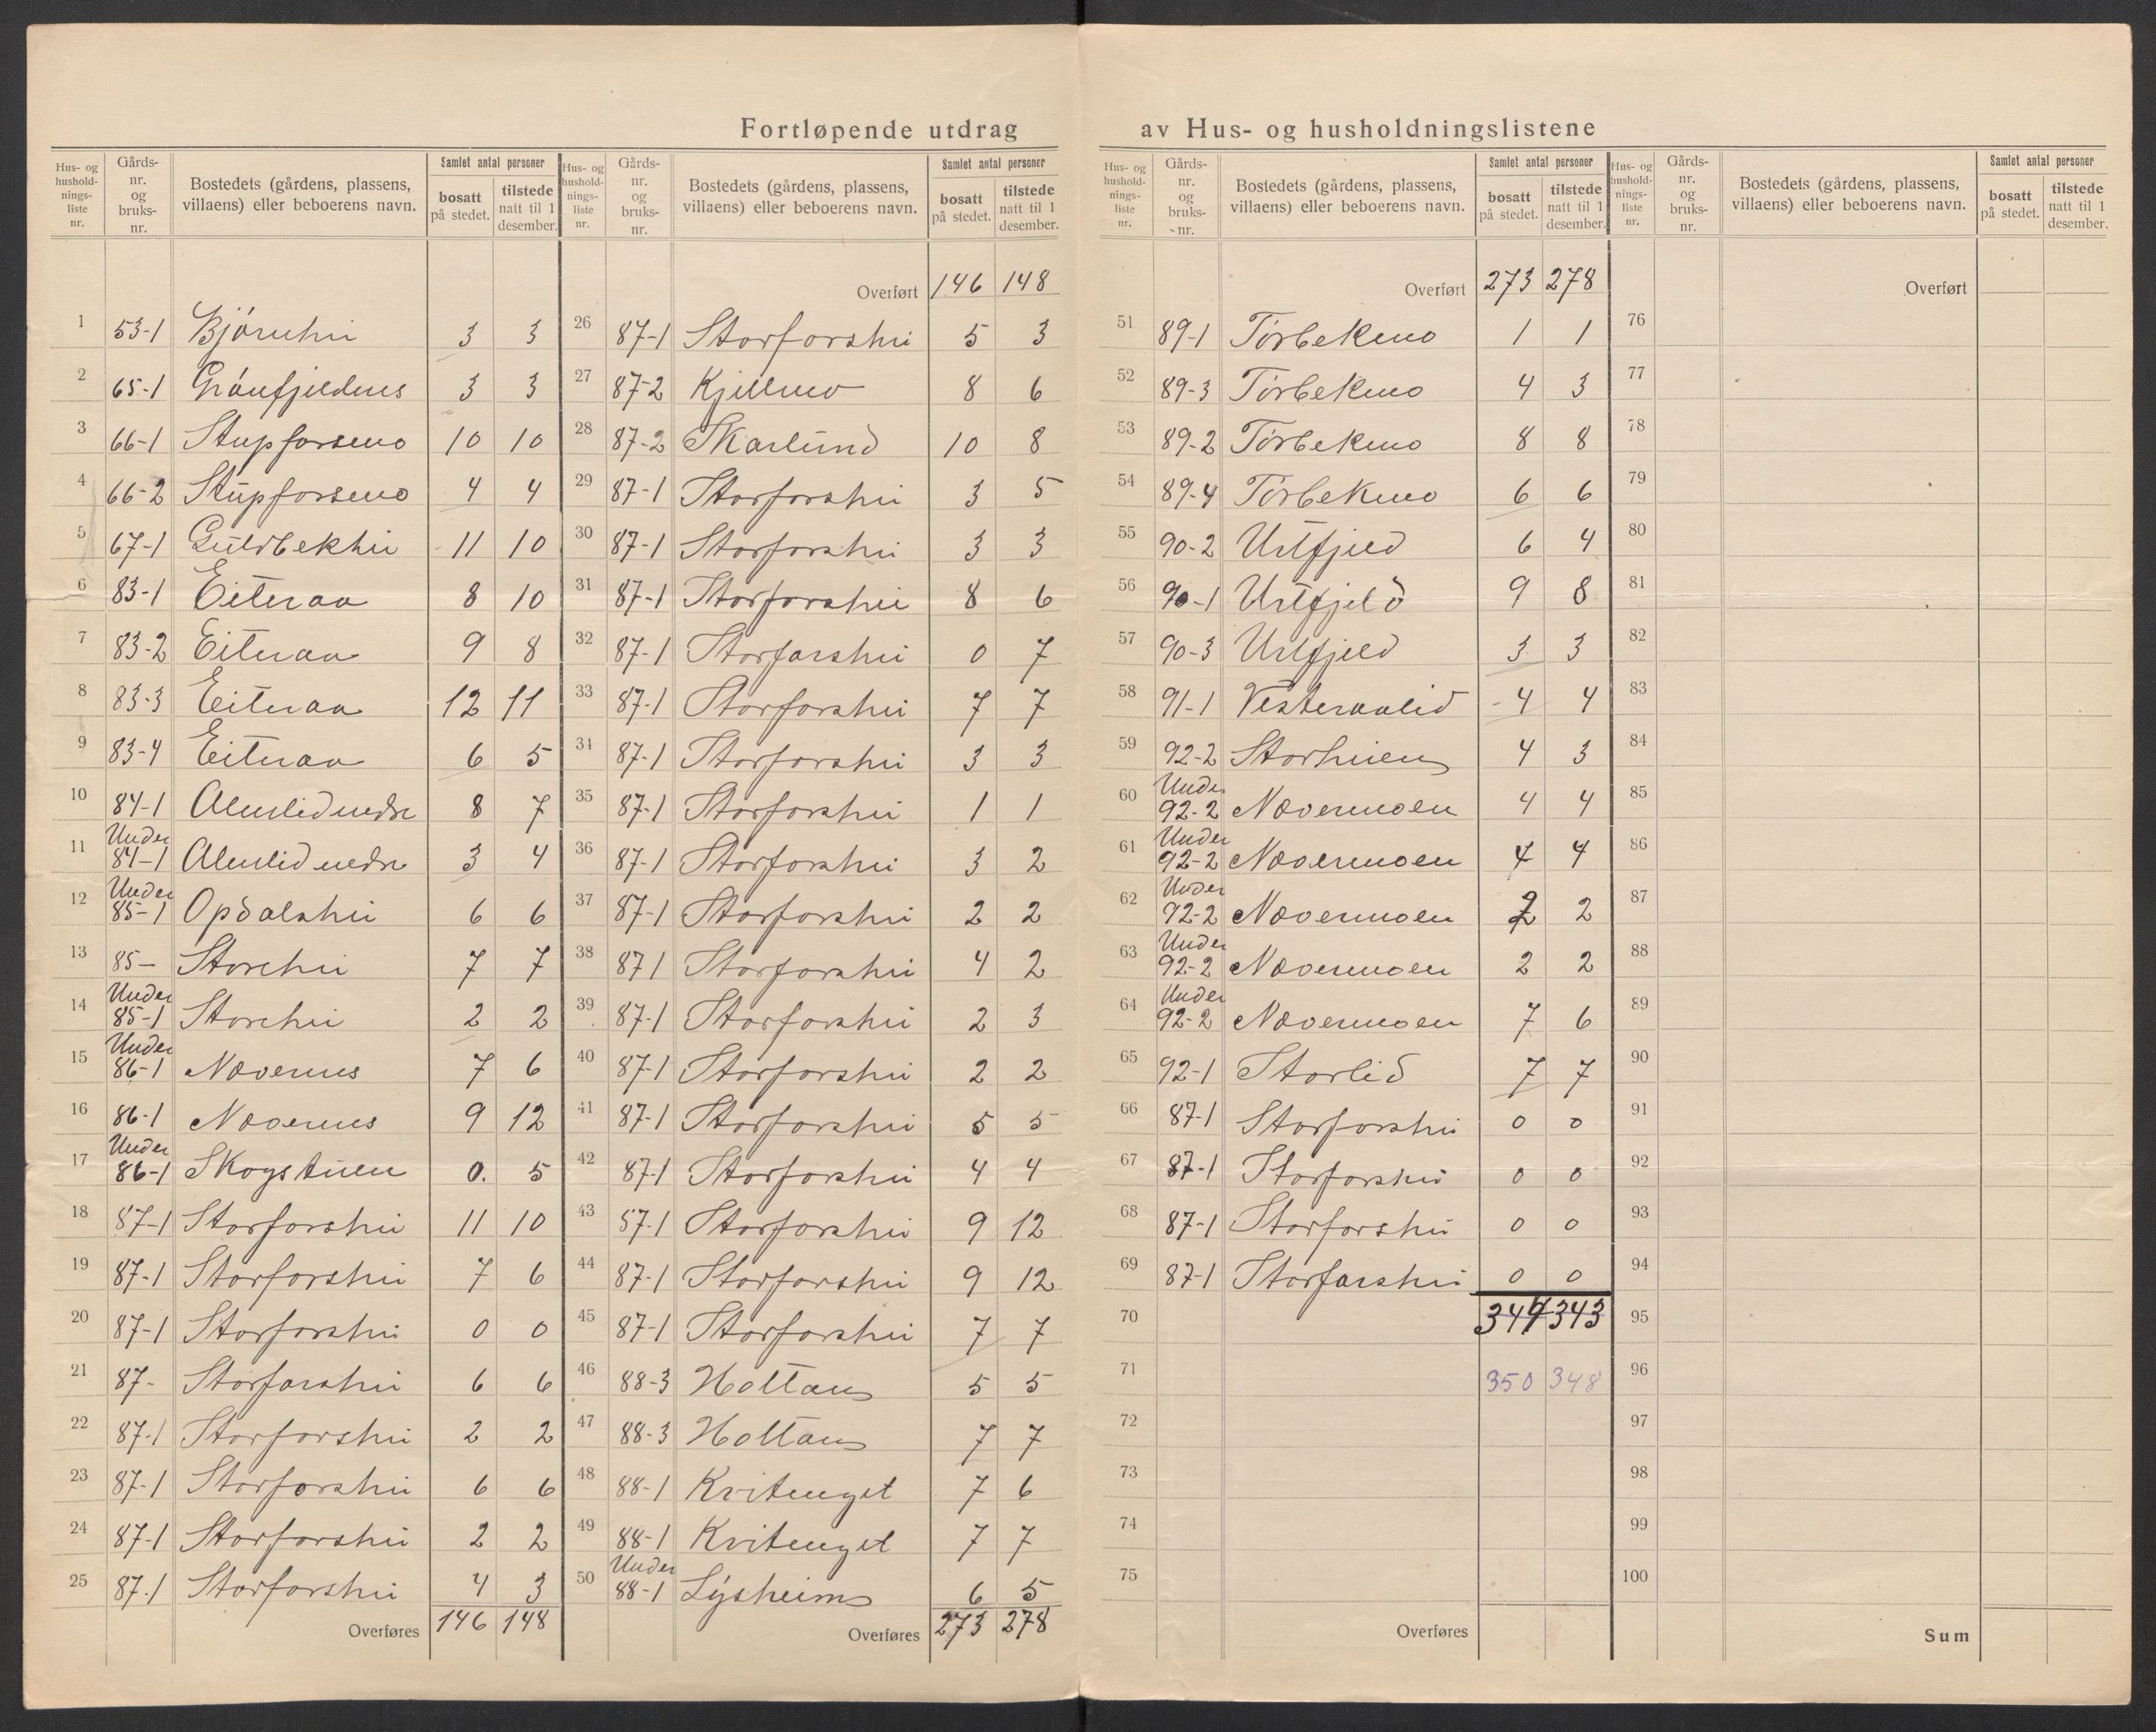 Fortløpende utdrag av Hus- og husholdningslistene
Hus- og husholdnings-liste nr. Gårds-nr. og bruks-nr. Bostedets (gårdens, plassens, villaens) eller beboerens navn. Samlet antal personer bosatt på stedet. tilstede natt til 1 desember.
1 53-1 Bjørnhei 3 3
2 65-1 Grønfjeldnes 3 3
3 66-1 Stupforsmo 10 10
4 66-2 Stupforsmo 4 4
5 67-1 Guldbekhei 11 10
6 83-1 Eiteraa 8 10
7 83-2 Eiteraa 9 8
8 83-3 Eiteraa 12 11
9 83-4 Eiteraa 6 5
10 84-1 Almlid nedre 8 7
11 Under 84-1 Almlid nedre 3 4
12 Under 85-1 Opdalshei 6 6
13 85- Storehei 7 7
14 Under 85-1 Storehei 2 2
15 Under 86-1 Nævernes 7 6
16 86-1 Nævernes 9 12
17 Under 86-1 Skogstuen 0. 5
18 87-1 Storforshei 11 10
19 87-1 Storforshei 7 6
20 87-1 Storforshei 0 0
21 87- Storforshei 6 6
22 87-1 Storforshei 2 2
23 87-1 Storforshei 6 6
24 87-1 Storforshei 2 2
25 87-1 Storforshei 4 3
Overføres 146 148
Hus- og husholdnings-liste nr. Gårds-nr. og bruks-nr. Bostedets (gårdens, plassens, villaens) eller beboerens navn. Samlet antal personer bosatt på stedet. tilstede natt til 1 desember.
Overført 146 148
26 87-1 Storforshei 5 3
27 87-2 Kjellmo 8 6
28 87-2 Skarlund 10 8
29 87-1 Storforshei 3 5
30 87-1 Storforshei 3 3
31 87-1 Storforshei 8 6
32 87-1 Storforshei 0 7
33 87-1 Storforshei 7 7
34 87-1 Storforshei 3 3
35 87-1 Storforshei 1 1
36 87-1 Storforshei 3 2
37 87-1 Storforshei 2 2
38 87 1 Storforshei 4 2
39 87-1 Storforshei 2 3
40 87-1 Storforshei 2 2
41 87-1 Storforshei 5 5
42 87-1 Storforshei 4 4
43 87-1 Storforshei 9 12
44 87-1 Storforshei 9 12
45 87-1 Storforshei 7 7
46 88-3 Holtan 5 5
47 88-3 Holtan 7 7
48 88-1 Kvitenget 7 6
49 88-1 Kvitenget 7 7
50 Under 88-1 Lysheim 6 5
Overføres 273 278
Hus- og husholdnings-liste nr. Gårds-nr. og bruks-nr. Bostedets (gårdens, plassens, villaens) eller beboerens navn. Samlet antal personer bosatt på stedet. tilstede natt til 1 desember.
Overført 273 278
51 89-1 Tørbekmo 1 1
52 89-3 Tørbekmo 4 3
53 89-2 Tørbekmo 8 8
54 89-4 Tørbekmo 6 6
55 90-2 Urtfjeld 6 4
56 90-1 Urtfjeld 9 8
57 90-3 Urtfjeld 3 3
58 91-1 Vesteraalid 4 4
59 92-2 Storheien 4 3
60 Under 92-2 Nævermoen 4 4
61 Under 92-2 Nævermoen 4 4
62 Under 92-2 Nævermoen 2 2
63 Under 92-2 Nævermoen 2 2
64 Under 92-2 Nævermoen 7 6
65 92-1 Storlid 7 7
66 87-1 Storforshei 0 0
67 87-1 Storforshei 0 0
68 87-1 Storforshei 0 0
69 87-1 Storforshei 0 0
70 343
71 350 348
72
73
74
75
Overføres
Hus- og husholdnings-liste nr. Gårds-nr. og bruks-nr. Bostedets (gårdens, plassens, villaens) eller beboerens navn. Samlet antal personer bosatt på stedet. tilstede natt til 1 desember.
Overført
76
77
78
79
80
81
82
83
84
85
86
87
88
89
90
91
92
93
94
95
96
97
98
99
100
Sum